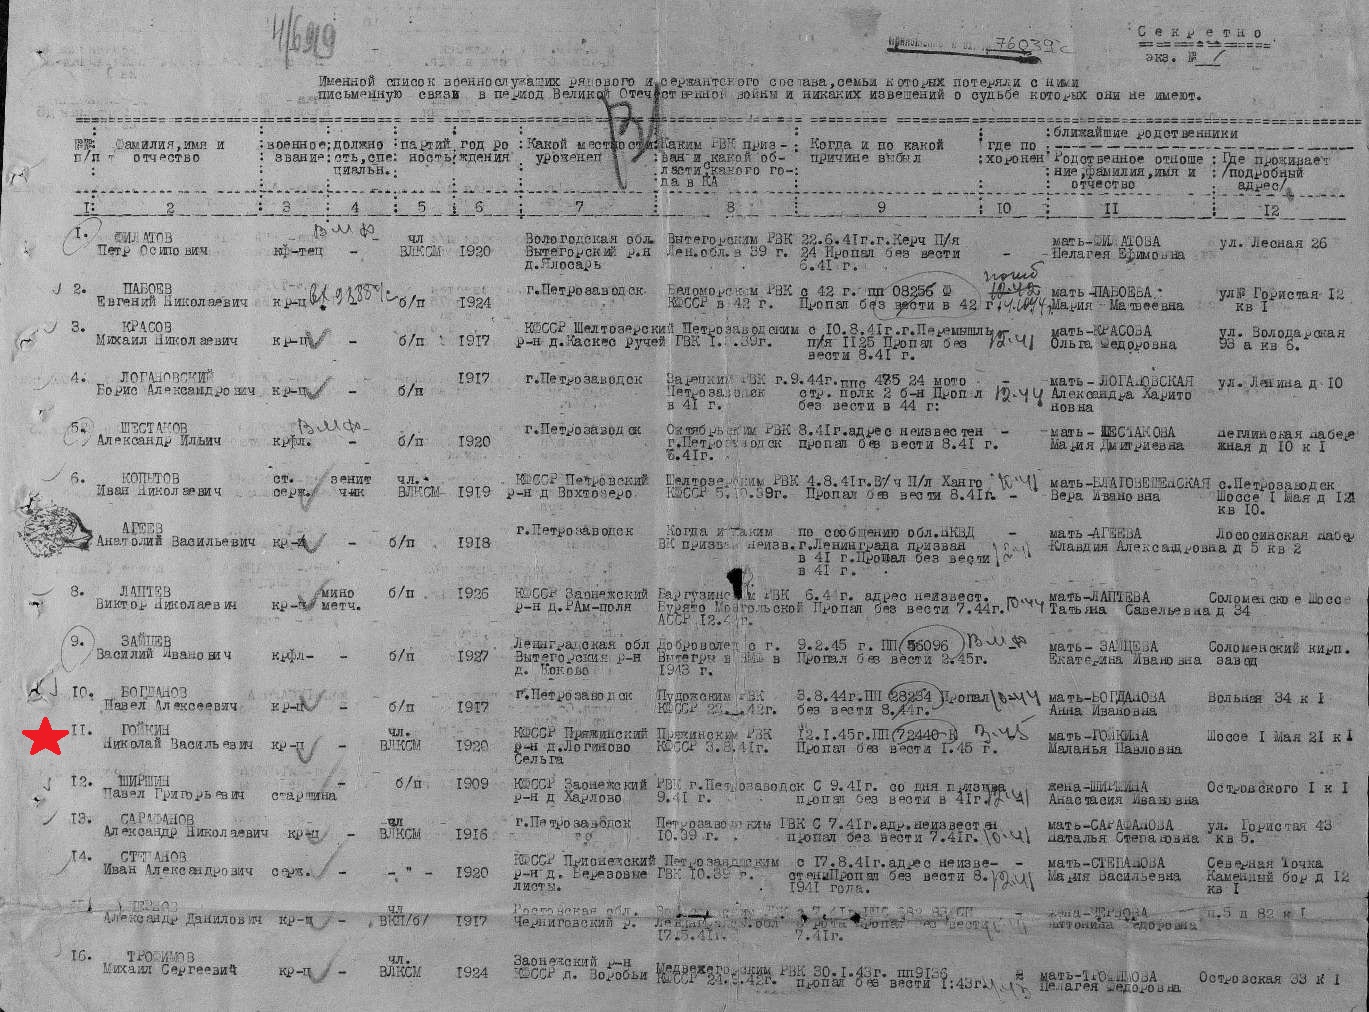 4/699
76039с
Секретно
экз. № 1
Именной список военнослужащих рядового и сержантского состава,семьи которых потеряли с ними
письменную связь в период Великой Отечественной войны и никаких извещений о судьбе которых они не имеют.
№№ п/п : Фамилия,имя и отчество : военное звание : должность,специальн. : партийность : год рождения : Какой местности уроженец : Каким РВК призван и какой области,какого года в КА : Когда и по какой причине выбыл : где похоронен : ближайшие родственники
Родственное отношение,фамилия,имя и отчество : Где проживает /подробный адрес/
1 2 3 4 5 6 7 8 9 10 11 12
1. ФИЛАТОВ В М Ф чл Вологодская обл. Вытегорским РВК 22.6.41г.г.Керч П/я мать-ФИЛАТОВА ул. Лесная 26
Петр Осипович кф-тец - ВЛКСМ 1920 Вытегорский р.н Лен.обл.в 39 г. 24 Пропал без вести - Пелагея Ефимовна
6.41 г.
2. ПАБОЕВ г.Петрозаводск Беломорским РВК с 42 г. пп 08256 Ф мать-ПАБОЕВА ул Гористая 12
Евгений Николаевич кр-ц б/п 1924 КФССР в 42 г. Пропал без вести в 42 г. Мария Матвеевна кв 1
3. КРАСОВ КФССР Шелтозерский Петрозаводским с 10.8.41г.г.Перемышль мать-КРАСОВА ул. Володарская
Михаил Николаевич кр-ц - б/п 1917 р-н д.Каскес ручей ГВК п/я 1125 Пропал без 12-41 Ольга Федоровна 93 а кв 6.
вести 8.41 г.
4. ЛОГАНОВСКИЙ 1917 г.Петрозаводск Зарецким РВК г.9.44г.ппс 475 24 мото - мать-ЛОГАНОВСКАЯ ул. Ленина д 10
Борис Александрович кр-ц - б/п Петрозаводск стр. полк 2 б-н Пропал 12-44 Александра Харито
в 41 г. без вести в 44 г: новна
5. ШЕСТАКОВ В М Ф г.Петрозаводск Октябрьским РВК 8.41г.адрес неизвестен - мать-ШЕСТАКОВА Неглинская набере
Александр Ильич крфл. - б/п 1920 г.Петрозаводск пропал без вести 8.41 г. Мария Дмитриевна жная д 10 к 1
6.41г.
6. КОПЫТОВ ст. зенит чл. КФССР Петровский Шелтозерским РВК 4.8.41г.В/ч П/л Ханго 10-41 мать-БЛАГОВЕЩЕНСКАЯ с.Петрозаводск
Иван Николаевич серж. чик ВЛКСМ 1919 р-н д Вохтозеро КФССР 5.10.39г. Пропал без вести 8.41г. - Вера Ивановна Шоссе 1 Мая д 12
кв 10.
АГЕЕВ г.Петрозаводск Когда и каким по сообщению обл.НКВД - мать-АГЕЕВА Лососинская набер
Анатолий Васильевич кр-ц - б/п 1918 ВК призван неизв. г.Ленинграда призван Клавдия Александровна д 5 кв 2
в 41 г.Пропал без вести
в 41 г.
8. ЛАПТЕВ мино б/п 1926 КФССР Заонежский Баргузинским РВК 6.44г. адрес неизвест. мать-ЛАПТЕВА Соломенское Шоссе
Виктор Николаевич кр-ц метч. р-н д.РАм-поля Бурято Монгольской Пропал без вести 7.44г. 10-44 Татьяна Савельевна д 34
АССР
9. ЗАЙЦЕВ Ленинградская обл Доброволец с г. 9.2.45 г. ПП 56096 В М Ф мать- ЗАЙЦЕВА Соломенский кирп.
Василий Иванович крфл- - б/п 1927 Вытегорский р-н Вытегры в ВМФ в Пропал без вести 2.45г. Екатерина Ивановна завод
д. Коково 1943 г.
10. БОГДАНОВ г.Петрозаводск Пудожским РВК 3.8.44г.ПП 28234 Пропал 10-44 мать-БОГДАНОВА Вольная 34 к 1
Павел Алексеевич кр-ц - б/п 1917 КФССР без вести 8.44г. Анна Ивановна
11. ГОЙКИН чл. КФССР Пряжинский Пряжинским РВК 12.1.45г.ПП 72440-В 3-45 мать-ГОЙКИНА Шоссе 1 Мая 21 к 1
Николай Васильевич кр-ц - ВЛКСМ 1920 р-н д.Логиново КФССР 3.8.41г. Пропал без вести 1.45 г. Маланья Павловна
Сельга
12. ШИРШИН - б/п 1909 КФССР Заонежский РВК г.Петрозаводск С 9.41г. со дня призыва жена-ШИРШИНА Островского 1 к 1
Павел Григорьевич старшина р-н д Харлово 9.41 г. пропал без вести в 41г. 12-41 Анастасия Ивановна
13. САРАФАНОВ чл г.Петрозаводск Петрозаводским ГВК С 7.41г.адр.неизвестен мать-САРАФАНОВА ул. Гористая 43
Александр Николаевич кр-ц - ВЛКСМ 1916 10.39 г. пропал без вести 7.41г. 10-41 Наталья Степановна кв 5.
14. СТЕПАНОВ КФССР Прионежский Петрозаводским с 17.8.41г.адрес неизве- - мать-СТЕПАНОВА Северная Точка
Иван Александрович серж. - -"- 1920 р-н д. Березовые ГВК 10.39 г. стен.Пропал без вести 8. 12-41 Мария Васильевна Каменный бор д 12
листы. 1941 года. кв 1
ЧЕРНОВ чл Ростовская обл. жена-ЧЕРНОВА п.5 д 82 к 1
Александр Данилович кр-ц - ВКП/б/ 1917 Черниговский р. без вести Антонина Федоровна
17.5.41г. 7.41г.
16. ТРОФИМОВ чл. Заонежский р-н Медвежегорским РВК 30.1.43г. пп9136 мать-ТРОФИМОВА Островская 33 к 1
Михаил Сергеевич кр-ц - ВЛКСМ 1924 КФССР д. Воробьи КФССР пропал без вести 1:43г. Пелагея Федоровна